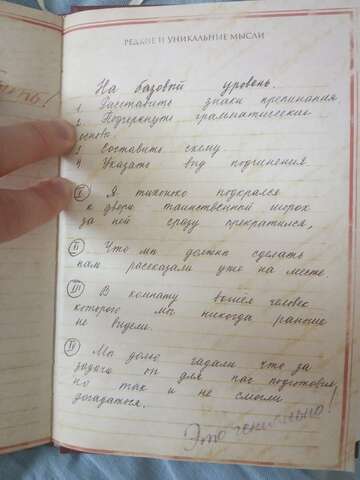 РЕДКИЕ И УНИКАЛЬНЫЕ МЫСЛИ
На базовый уровень.
1. Расставить знаки препинания
2. Подчеркнуть грамматические
основы.
3. Составить схему.
4. Указать вид подчинения
I Я тихонько подкрался
к двери таинственный шорох
за ней сразу прекратился,
II Что мы должны сделать
нам рассказали уже на месте.
III В комнату вошёл человек
которого мы никогда раньше
не видели.
IV Мы долго гадали что за
задачу он для нас подготовил
но так и не смогли
догадаться.
Это гениально!